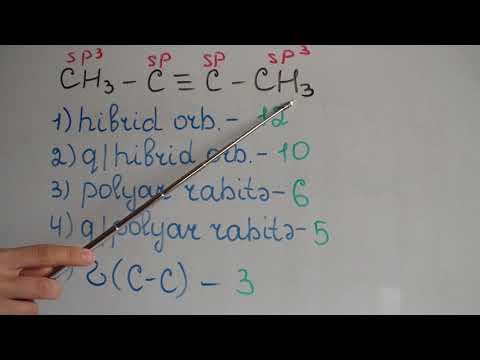 sp³ sp sp sp³
CH₃ – C ≡ C – CH₃
1) hibrid orb. – 12
2) q/hibrid orb. – 10
3) polyar rabitə – 6
4) q/polyar rabitə – 5
) (C–C) – 3